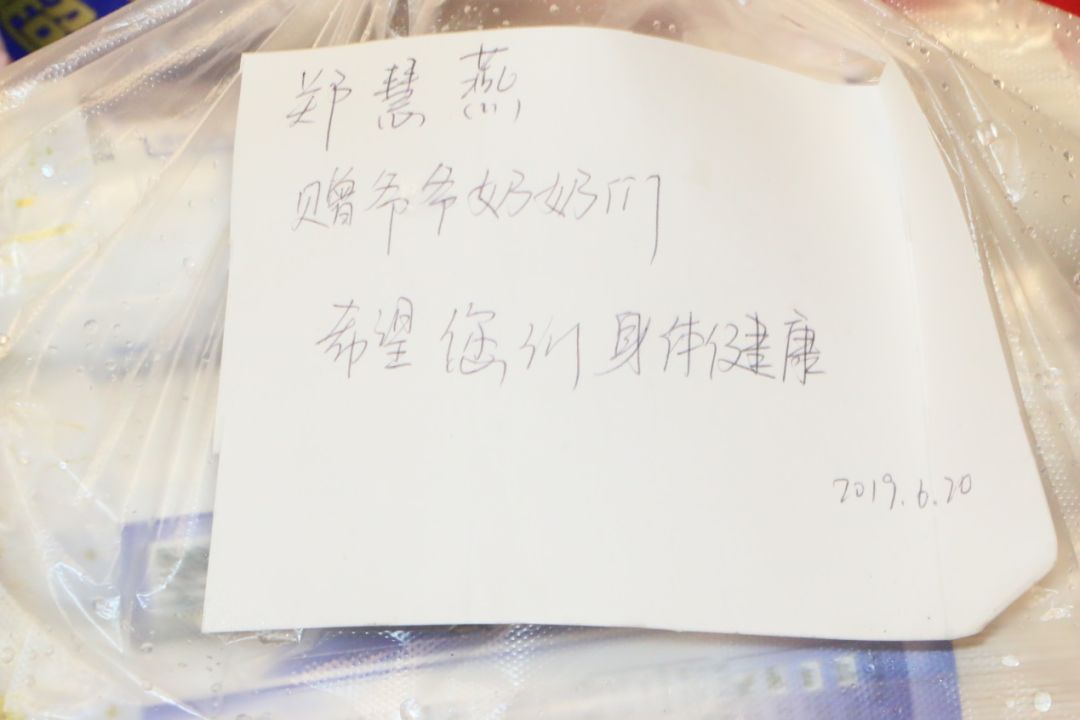 郑慧燕
赠爷爷奶奶们
希望您们身体健康
2019.6.20